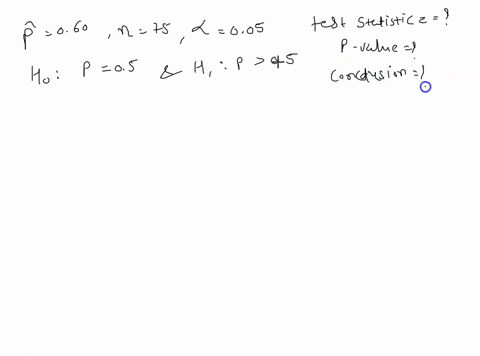 p̂ = 0.60 , n = 75 , α = 0.05
H₀ : P = 0.5 & H₁ : P > 0.5
test statistic = ?
P-value = ?
Conclusion = ?